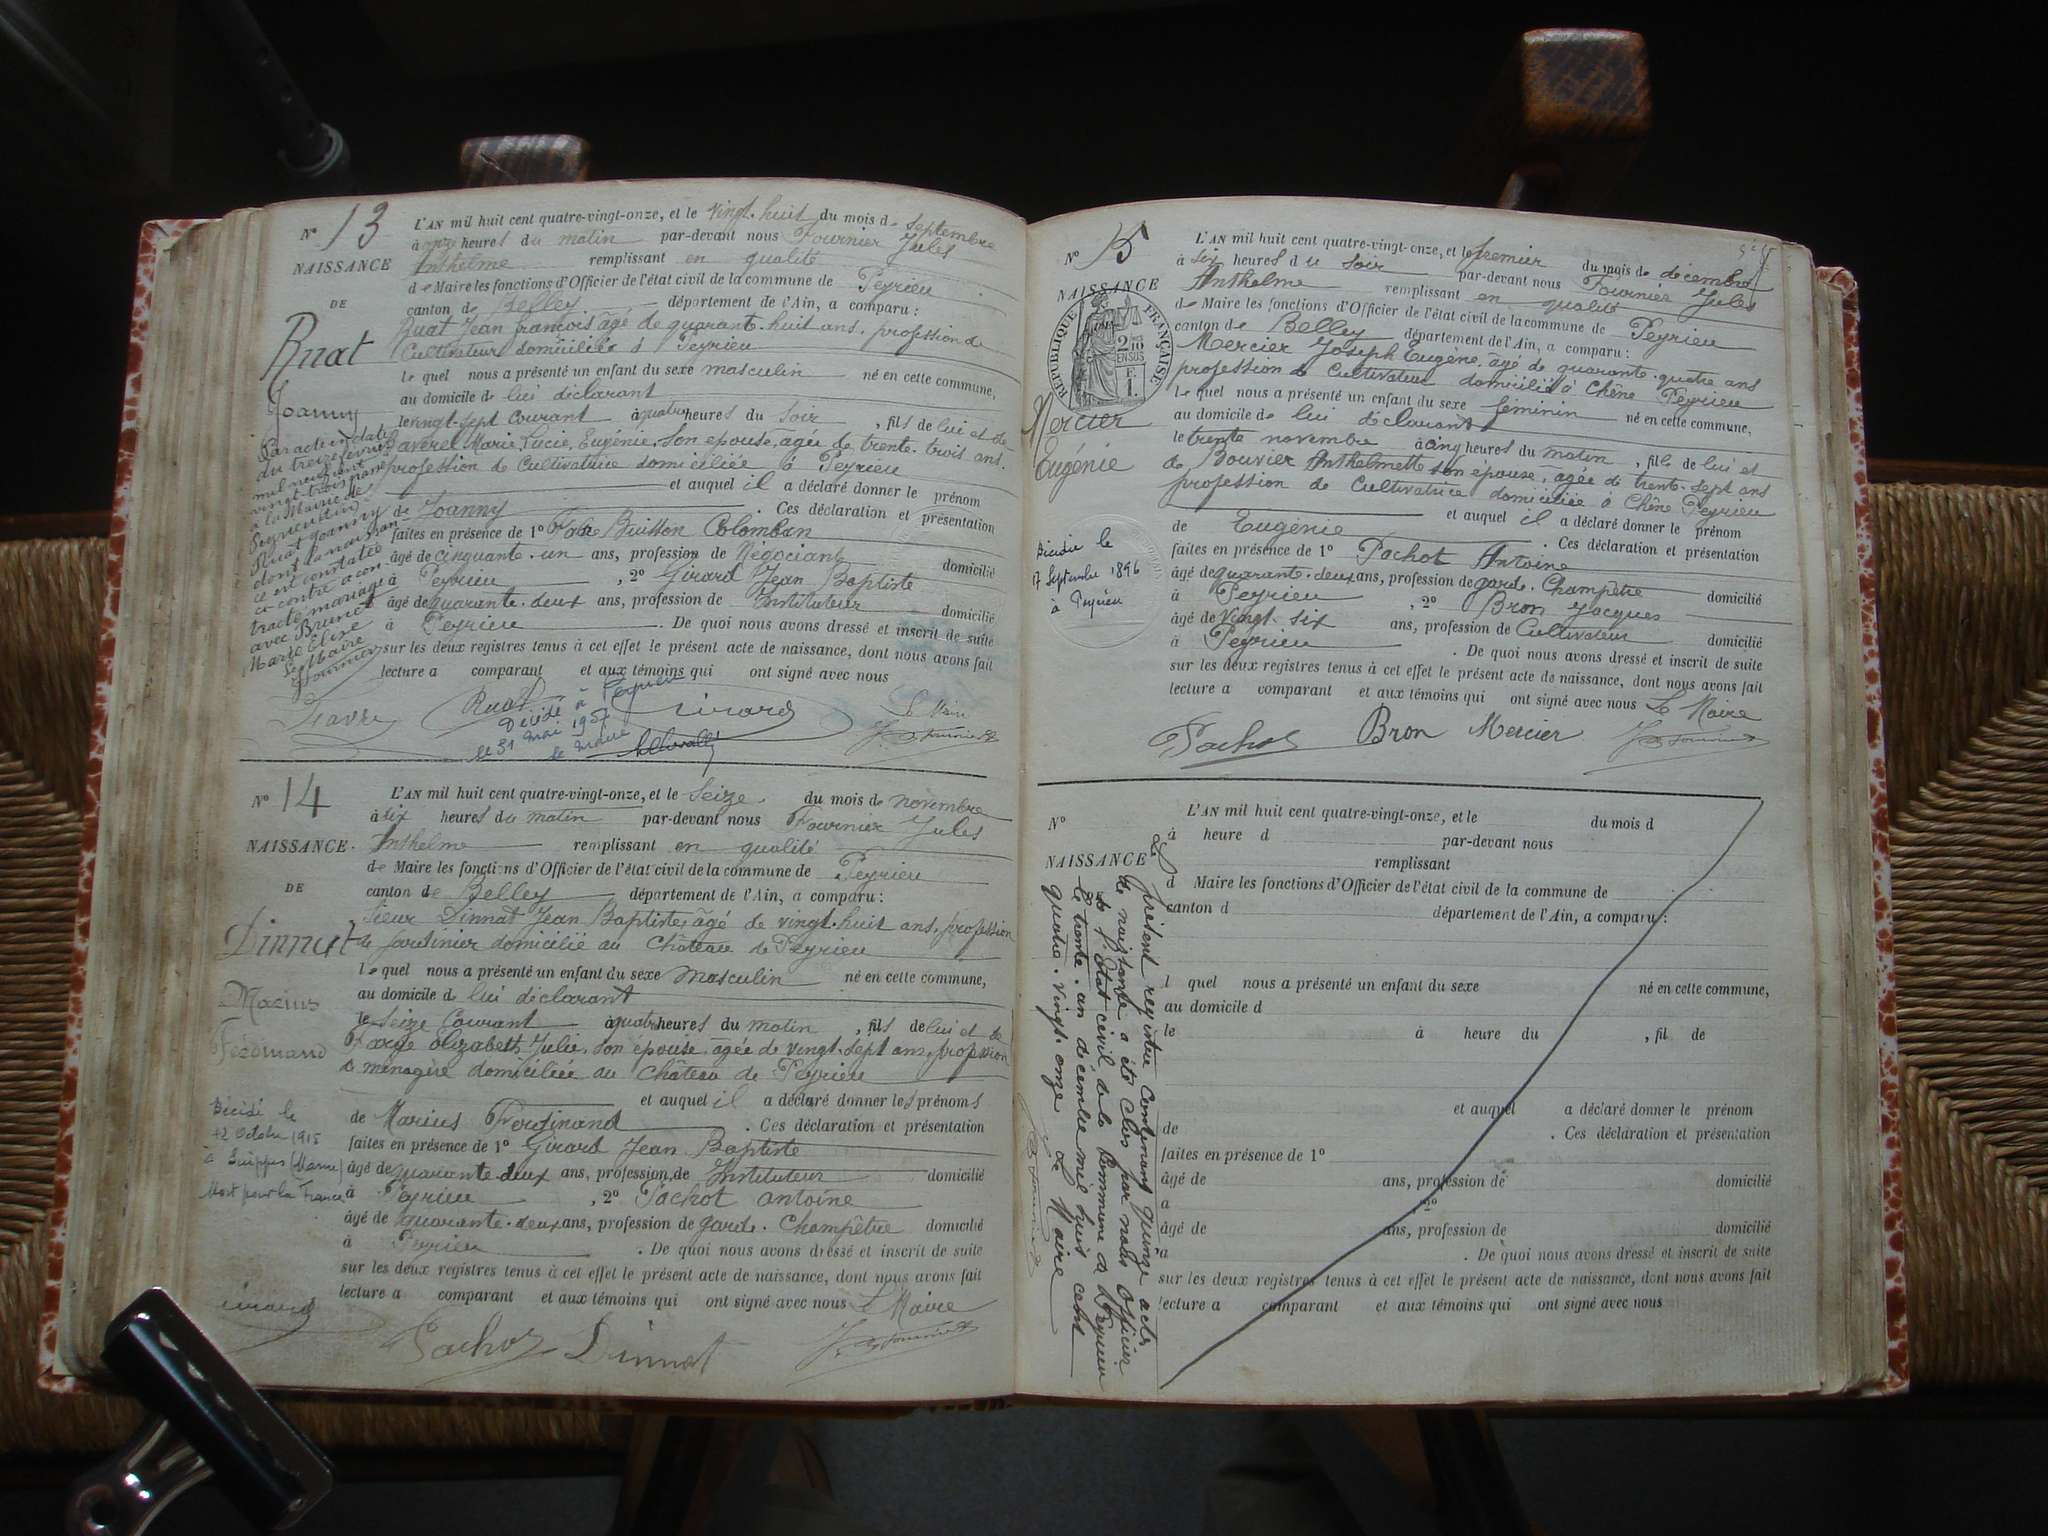 N° 13
NAISSANCE
DE
Ruat
Joanny
Par acte en date
du treize février
mil neuf cent
vingt-trois passé
à la Mairie de
Ruat Joanny
dont la naissance
est constatée
ci-contre a con-
tracté mariage
avec Brunet
Marie Eline
Le Maire
JFournier
L'AN mil huit cent quatre-vingt-onze, et le vingt-huit du mois de septembre
à onze heures du matin par-devant nous Fournier Jules
Anthelme remplissant en qualité
de Maire les fonctions d'Officier de l'état civil de la commune de Peyrieu
canton de Belley département de l'Ain, a comparu :
Ruat Jean françois âgé de quarante-huit ans, profession de
Cultivateur domicilié à Peyrieu
lequel nous a présenté un enfant du sexe masculin né en cette commune,
au domicile de lui déclarant
le vingt-sept Courant à quatre heures du soir, fils de lui et de
Faverel Marie Lucie, Eugénie, son épouse, agée de trente-trois ans.
profession de Cultivatrice domiciliée à Peyrieu
et auquel il a déclaré donner le prénom
de Joanny. Ces déclaration et présentation
faites en présence de 1° Buisson Colomban
âgé de cinquante-un ans, profession de Négociant domicilié
à Peyrieu, 2° Girard Jean Baptiste
âgé de quarante-deux ans, profession de Instituteur domicilié
à Peyrieu. De quoi nous avons dressé et inscrit de suite
sur les deux registres tenus à cet effet le présent acte de naissance, dont nous avons fait
lecture a comparant et aux témoins qui ont signé avec nous
Ruat Girard Le Maire
Décédé à Peyrieu
le 31 mai 1957
le Maire
N° 14
NAISSANCE.
DE
Dinnat
Marius
Ferdinand
Décédé le
12 Octobre 1915
à Suippes (Marne)
Mort pour la France
L'AN mil huit cent quatre-vingt-onze, et le Seize du mois de novembre
à six heures du matin par-devant nous Fournier Jules
Anthelme remplissant en qualité
de Maire les fonctions d'Officier de l'état civil de la commune de Peyrieu
canton de Belley département de l'Ain, a comparu :
Sieur Dinnat Jean Baptiste, âgé de vingt-huit ans, profession
de jardinier domicilié au Château de Peyrieu
lequel nous a présenté un enfant du sexe masculin né en cette commune,
au domicile de lui déclarant
le Seize Courant à quatre heures du matin, fils de lui et de
Farge Elizabeth Julie, son épouse, agée de vingt-sept ans, profession
de ménagère domiciliée au Château de Peyrieu
et auquel il a déclaré donner les prénoms
de Marius Ferdinand. Ces déclaration et présentation
faites en présence de 1° Girard Jean Baptiste
âgé de quarante-deux ans, profession de Instituteur domicilié
à Peyrieu, 2° Pachot antoine
âgé de quarante-deux ans, profession de garde-Champêtre domicilié
à Peyrieu. De quoi nous avons dressé et inscrit de suite
sur les deux registres tenus à cet effet le présent acte de naissance, dont nous avons fait
lecture a comparant et aux témoins qui ont signé avec nous Le Maire
Girard Pachot Dinnat
N° 15
NAISSANCE
RÉPUBLIQUE FRANÇAISE
2/10
EN SUS
F.
1.
Mercier
Eugénie
Décédée le
17 Septembre 1896
à Peyrieu
L'AN mil huit cent quatre-vingt-onze, et le premier du mois de décembre
à six heures du soir par-devant nous Fournier Jules
Anthelme remplissant en qualité
de Maire les fonctions d'Officier de l'état civil de la commune de Peyrieu
canton de Belley département de l'Ain, a comparu :
Mercier Joseph Eugène, âgé de quarante-quatre ans
profession de Cultivateur domicilié à Chêne Peyrieu
lequel nous a présenté un enfant du sexe féminin né en cette commune,
au domicile de lui déclarant
le trente novembre à cinq heures du matin, fils de lui et
de Bouvier Anthelmette son épouse, agée de trente-sept ans
profession de Cultivatrice domiciliée à Chêne Peyrieu
et auquel il a déclaré donner le prénom
de Eugénie. Ces déclaration et présentation
faites en présence de 1° Pachot Antoine
âgé de quarante-deux ans, profession de garde-Champêtre domicilié
à Peyrieu, 2° Bron Jacques
âgé de vingt-six ans, profession de Cultivateur domicilié
à Peyrieu. De quoi nous avons dressé et inscrit de suite
sur les deux registres tenus à cet effet le présent acte de naissance, dont nous avons fait
lecture a comparant et aux témoins qui ont signé avec nous Le Maire
Pachot Bron Mercier
N°
NAISSANCE
Le présent registre Contenant quinze actes
de naissance a été Clos par nous Officier
de l'état civil de la Commune de Peyrieu
le trente-un décembre mil huit cent
quatre-vingt-onze. Le Maire
L'AN mil huit cent quatre-vingt-onze, et le du mois d
à heure d par-devant nous
remplissant
d Maire les fonctions d'Officier de l'état civil de la commune de
canton d département de l'Ain, a comparu :
l quel nous a présenté un enfant du sexe né en cette commune,
au domicile d
le à heure du , fil de
et auquel a déclaré donner le prénom
de . Ces déclaration et présentation
faites en présence de 1°
âgé de ans, profession de domicilié
à , 2°
âgé de ans, profession de domicilié
à . De quoi nous avons dressé et inscrit de suite
sur les deux registres tenus à cet effet le présent acte de naissance, dont nous avons fait
lecture a comparant et aux témoins qui ont signé avec nous